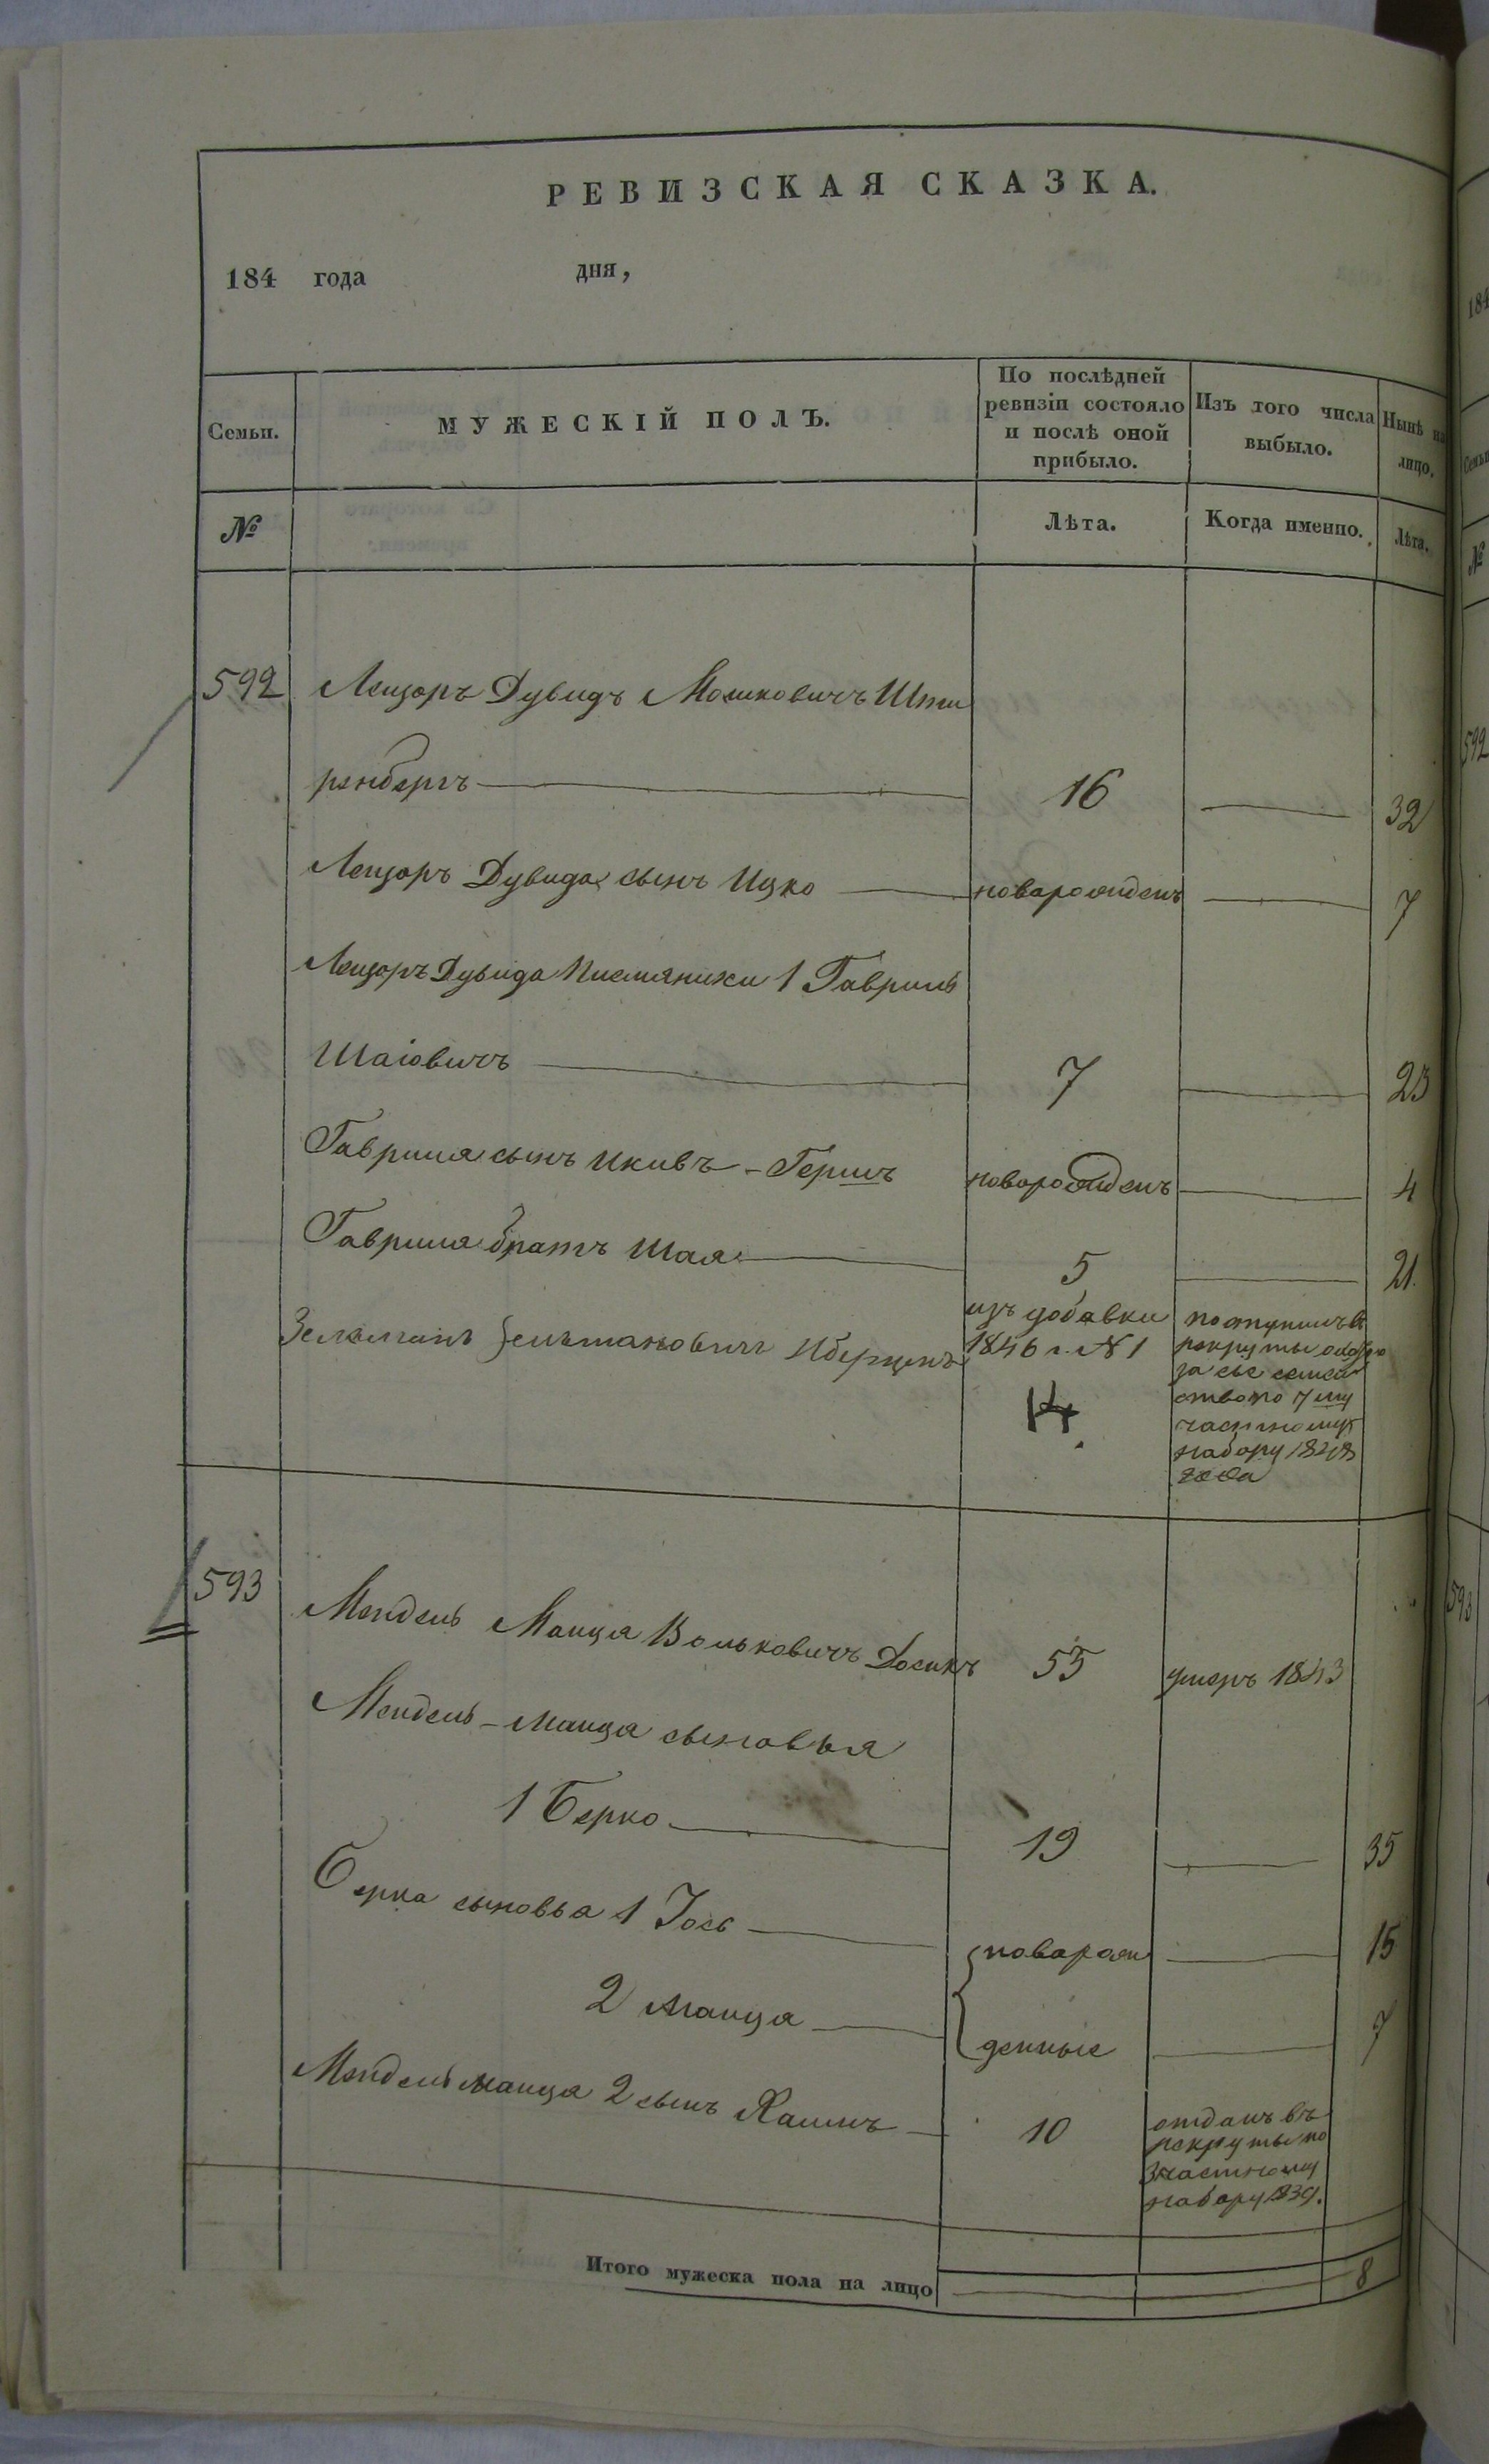 РЕВИЗСКАЯ СКАЗКА.
184 года дня,
Семьи.
МУЖЕСКІЙ ПОЛЪ.
По послѣдней
ревизіи состояло
и послѣ оной
прибыло.
Изъ того числа
выбыло.
Нынѣ на
лицо.
№
Лѣта.
Когда именно.
Лѣта.
592 Лейзоръ Дувидъ Мошковичъ Шти
ренбергъ 16 32
Лейзоръ Дувида сынъ Ицко новарожденъ 7
Лейзоръ Дувида Племяники 1 Гавриль
Шаіовичъ 7 23
Гаврила сынъ Икивъ-Гершъ новорожденъ 4
Гаврила братъ Шая 5 21.
Зельманъ Зельмановичъ
изъ добавки
1846 г. № 1
14.
поступилъ въ
рекруты
за сье семей
ство по 7му
частному
набору 1848
года
593 Мендель Манца Вольковичъ Досикъ 55 умеръ 1843
Мендель-Манца сыновья
1 Берко 19 35
Берка сыновья 1 Іось новарож 15
2 Манца денные 7
Мендель Манца 2 сынъ Хаимъ 10
отданъ въ
рекруты по
3 частному
набору 1839.
Итого мужеска пола на лицо 8
184
592
593
№